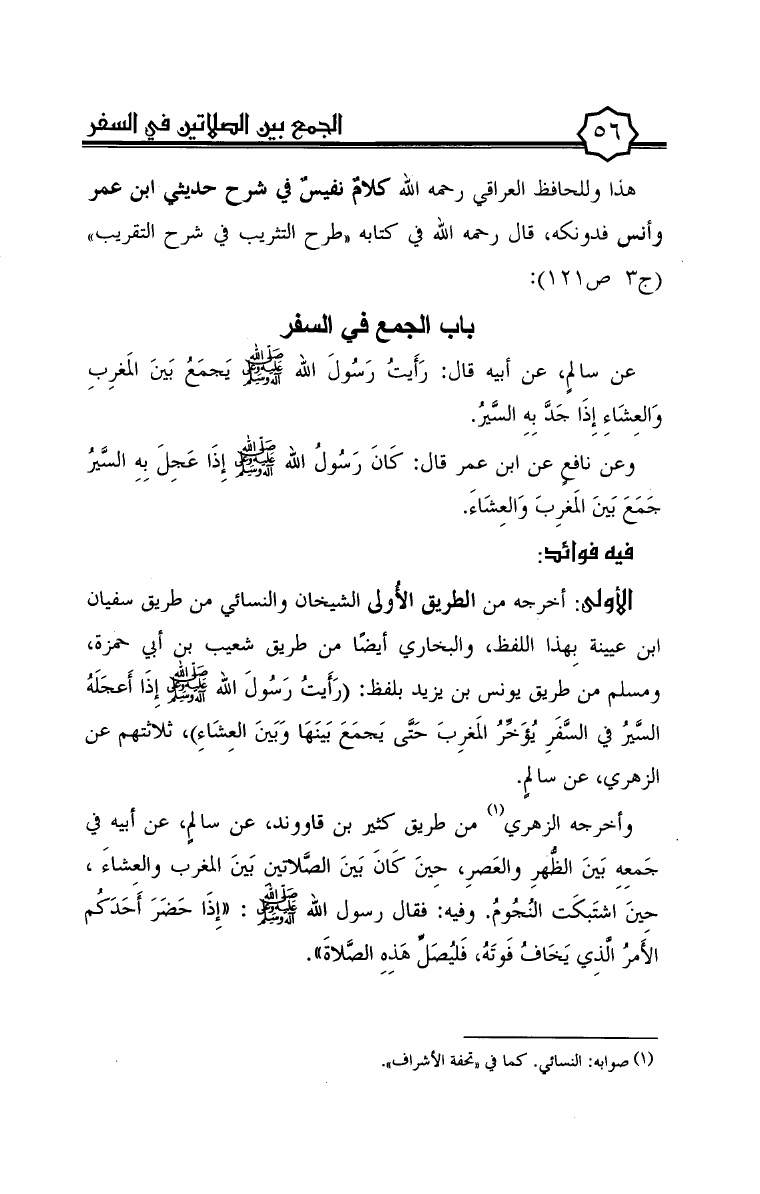 الجمع بين الصلاتين في السفر
٥٦
هذا وللحافظ العراقي رحمه الله كلامٌ نفيسٌ في شرح حديثي ابن عمر
وأنس فدونكه، قال رحمه الله في كتابه «طرح التثريب في شرح التقريب»
(ج٣ ص١٢١):
باب الجمع في السفر
عن سالمٍ، عن أبيه قال: رَأَيتُ رَسُولَ الله ﷺ يَجمَعُ بَينَ المَغرِبِ
وَالعِشَاءِ إِذَا جَدَّ بِهِ السَّيرُ.
وعن نافعٍ عن ابن عمر قال: كَانَ رَسُولُ الله ﷺ إِذَا عَجِلَ بِهِ السَّيرُ
جَمَعَ بَينَ المَغرِبَ وَالعِشَاءَ.
فيه فوائد:
الأولى: أخرجه من الطريق الأُولى الشيخان والنسائي من طريق سفيان
ابن عيينة بهذا اللفظ، والبخاري أيضًا من طريق شعيب بن أبي حمزة،
ومسلم من طريق يونس بن يزيد بلفظ: (رَأَيتُ رَسُولَ الله ﷺ إِذَا أَعجَلَهُ
السَّيرُ في السَّفَرِ يُؤَخِّرُ المَغرِبَ حَتَّى يَجمَعَ بَينَهَا وَبَينَ العِشَاءِ)، ثلاثتهم عن
الزهري، عن سالمٍ.
وأخرجه الزهري(١) من طريق كثير بن قاووند، عن سالمٍ، عن أبيه في
جَمعِهِ بَينَ الظُّهرِ والعَصرِ، حِينَ كَانَ بَينَ الصَّلاتينِ بَينَ المَغرب والعِشاءَ ،
حِينَ اشتَبَكَت النُّجُومُ. وفيه: فقال رسول الله ﷺ : «إِذَا حَضَرَ أَحَدَكُم
الأَمرُ الَّذِي يَخَافُ فَوتَهُ، فَليُصَلِّ هَذِهِ الصَّلاةَ».
(١) صوابه: النسائي. كما في «تحفة الأشراف».